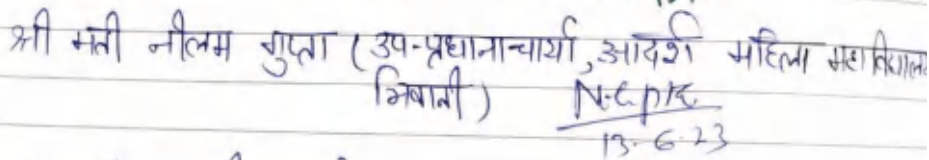 श्री मती नीलम गुप्ता (उप-प्रधानाचार्या, आदर्श महिला महाविद्यालय
भिवानी)
13.6.23